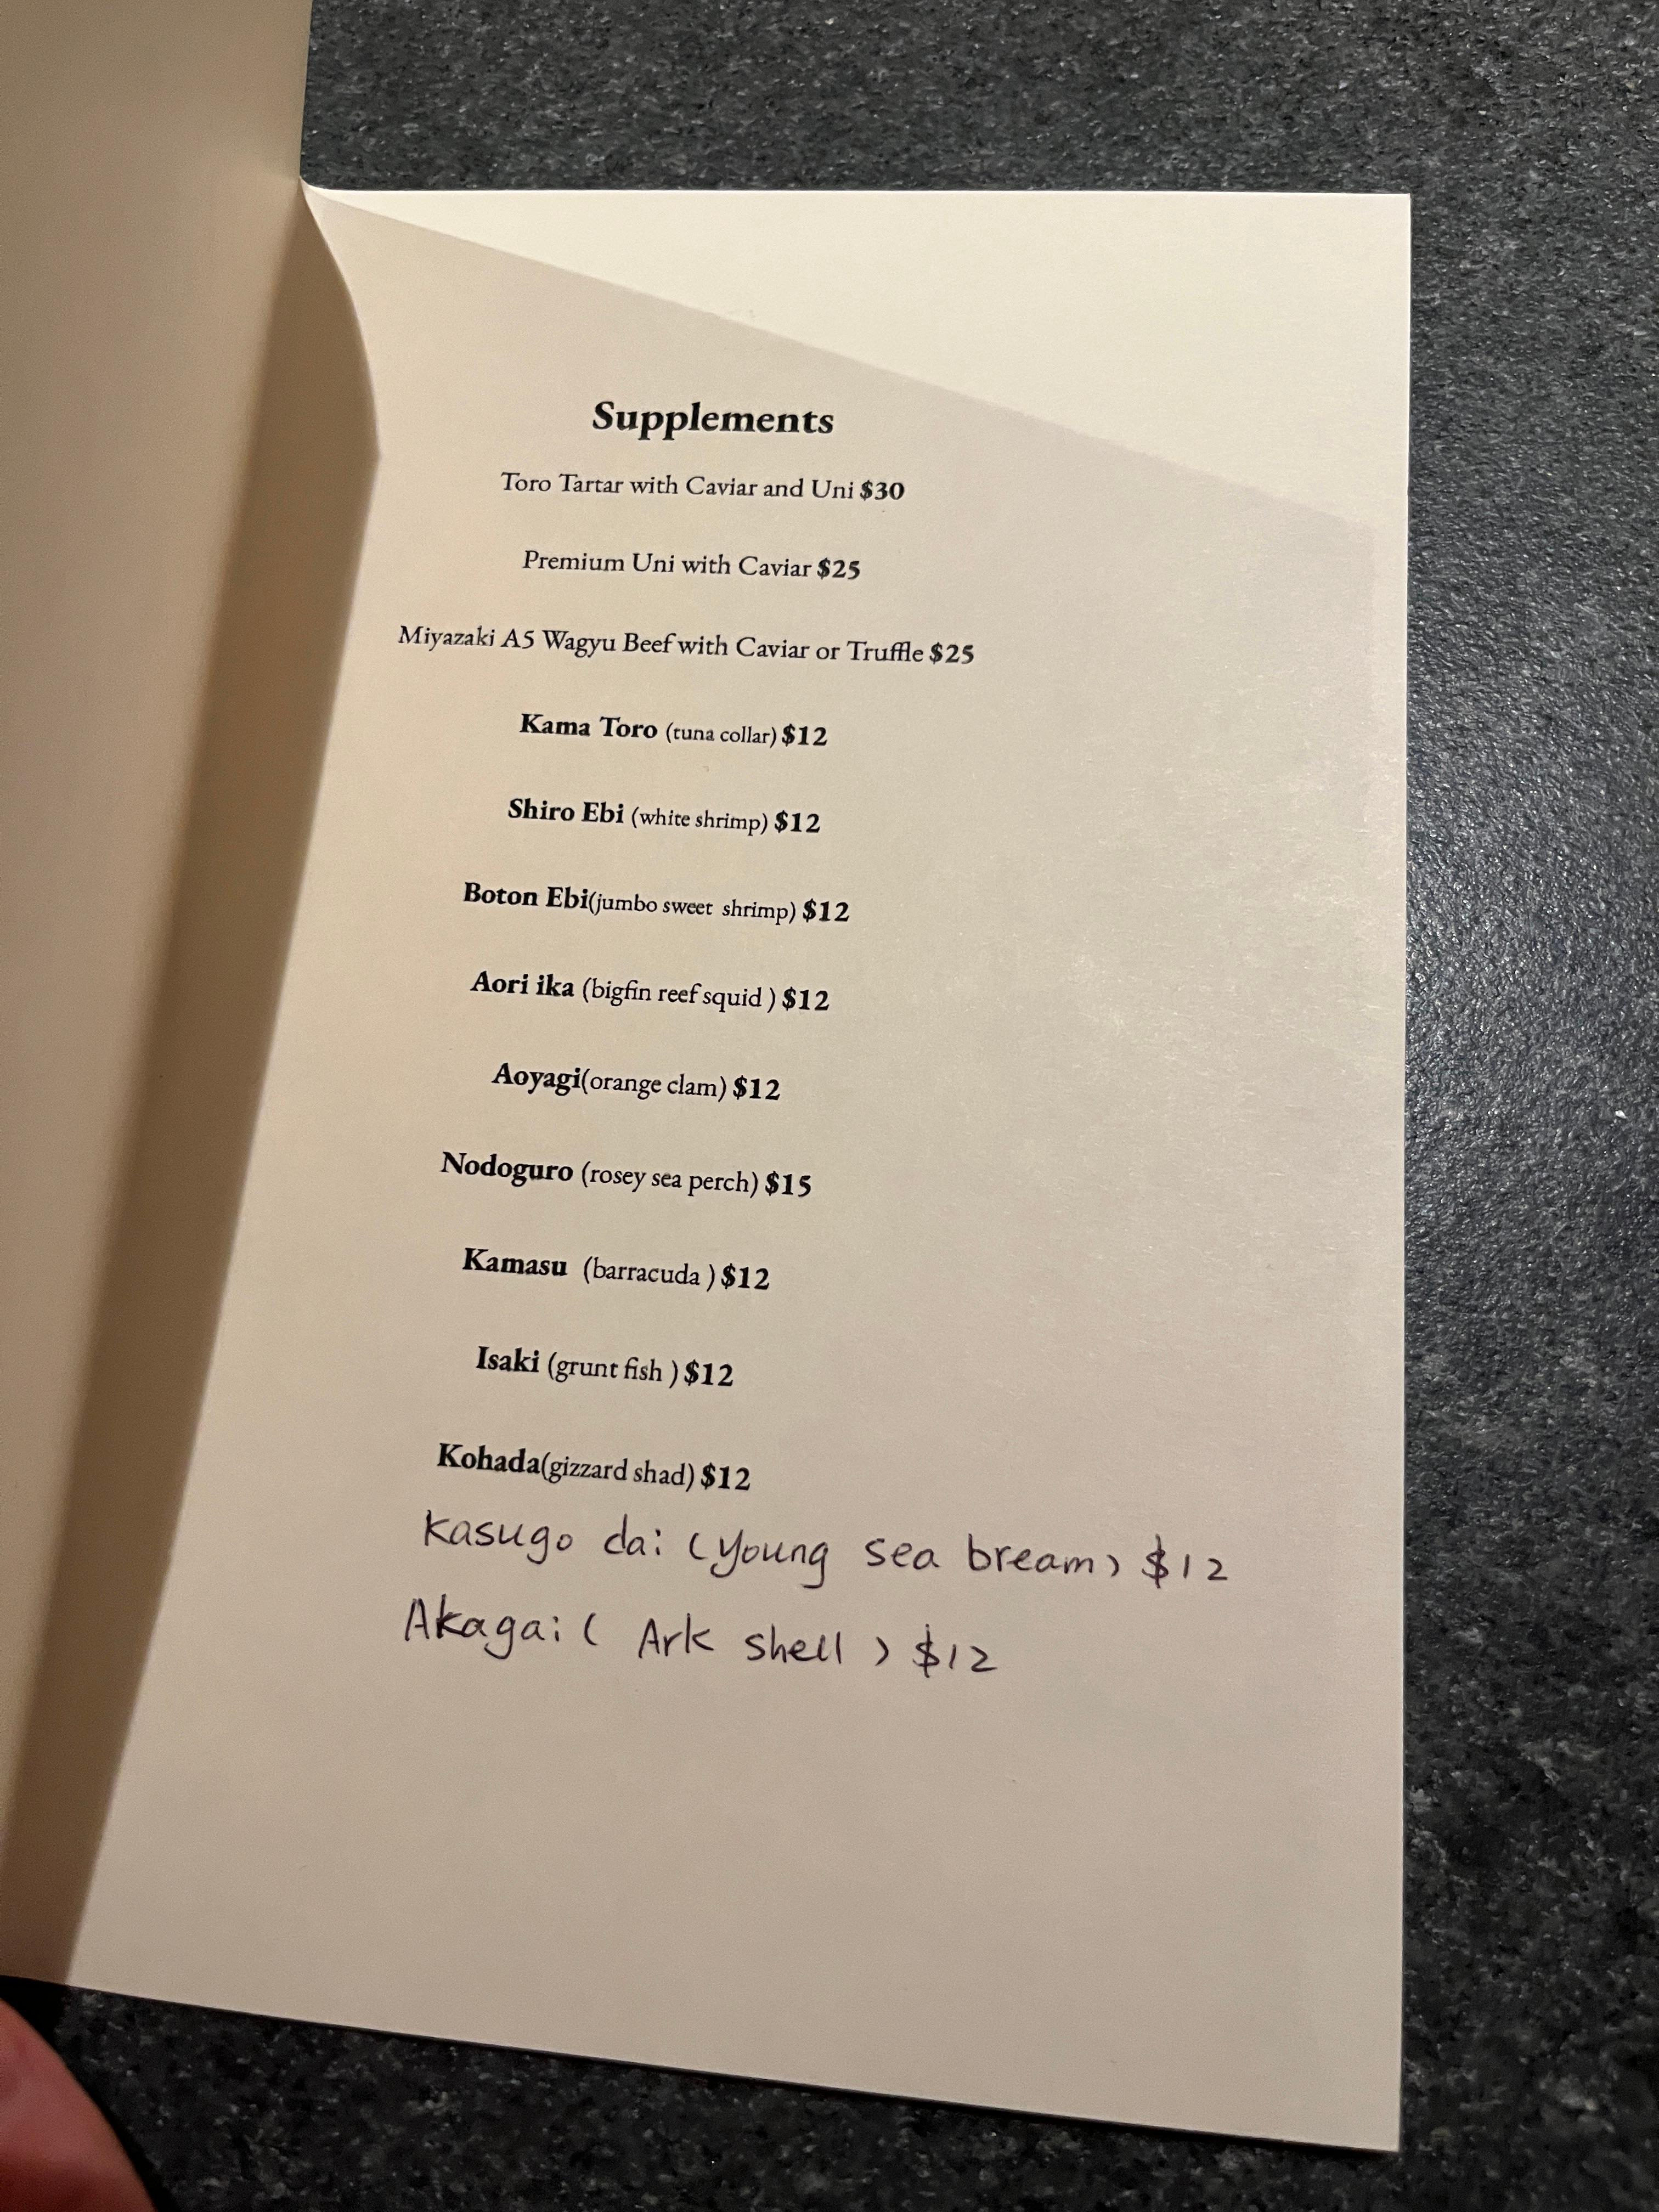 Supplements
Toro Tartar with Caviar and Uni $30
Premium Uni with Caviar $25
Miyazaki A5 Wagyu Beef with Caviar or Truffle $25
Kama Toro (tuna collar) $12
Shiro Ebi (white shrimp) $12
Boton Ebi(jumbo sweet shrimp) $12
Aori ika (bigfin reef squid ) $12
Aoyagi(orange clam) $12
Nodoguro (rosey sea perch) $15
Kamasu (barracuda ) $12
Isaki (grunt fish ) $12
Kohada(gizzard shad) $12
Kasugo dai (young sea bream) $12
Akagai ( Ark shell ) $12